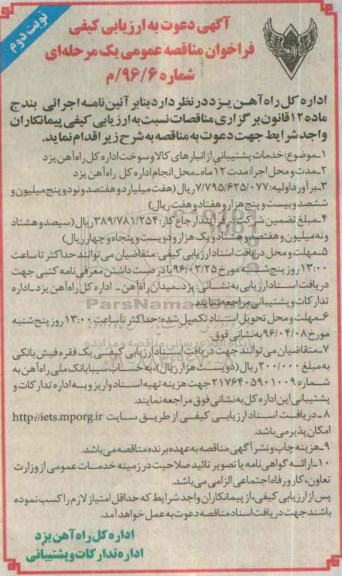 نوبت دوم
آگهی دعوت به ارزیابی کیفی
فراخوان مناقصه عمومی یک مرحله‌ای
شماره ۹۶/۶/م
اداره کل راه‌آهن یزد در نظر دارد بنابر آئین‌نامه اجرائی بند ج
ماده ۱۲ قانون برگزاری مناقصات نسبت به ارزیابی کیفی پیمانکاران
واجد شرایط جهت دعوت به مناقصه به شرح زیر اقدام نماید.
۱ـ موضوع: خدمات پشتیبانی از انبارهای کالا و سوخت اداره کل راه‌آهن یزد
۲ـ مدت و محل اجرا: مدت ۱۲ ماه ـ محل انجام اداره کل راه‌آهن یزد
۳ـ برآورد اولیه: ۷/۷۹۵/۶۲۵/۰۷۷ ریال (هفت میلیارد و هفتصد و نود و پنج میلیون و
ششصد و بیست و پنج هزار و هفتاد و هفت ریال)
۴ـ مبلغ تضمین شرکت در فرآیند ارجاع کار: ۳۸۹/۷۸۱/۲۵۴ ریال (سیصد و هشتاد
و نه میلیون و هفتصد و هشتاد و یک هزار و دویست و پنجاه و چهار ریال)
۵ـ مهلت و محل دریافت اسناد ارزیابی کیفی: متقاضیان می‌توانند حداکثر تا ساعت
۱۳:۰۰ روز پنج‌شنبه مورخ ۹۶/۰۳/۲۵ با در دست داشتن معرفی‌نامه کتبی جهت
دریافت اسناد ارزیابی به نشانی: یزد ـ میدان راه‌آهن ـ اداره کل راه‌آهن یزد ـ اداره
تدارکات و پشتیبانی مراجعه نمایند.
۶ـ مهلت و محل تحویل اسناد تکمیل شده: حداکثر تا ساعت ۱۳:۰۰ روز پنج‌شنبه
مورخ ۹۶/۰۴/۰۸ به نشانی فوق.
۷ـ متقاضیان می‌توانند جهت دریافت اسناد ارزیابی کیفی یک فقره فیش بانکی
به مبلغ ۲۰۰/۰۰۰ ریال (دویست هزار ریال) به حساب سیبا بانک ملی راه‌آهن به
شماره ۲۱۷۶۴۰۵۹۰۱۰۰۹ جهت هزینه تهیه اسناد واریز و به اداره تدارکات و
پشتیبانی این اداره کل به نشانی فوق مراجعه نمایند.
۸ـ دریافت اسناد ارزیابی کیفی از طریق سایت http://iets.mporg.ir
امکان‌پذیر می‌باشد.
۹ـ هزینه چاپ و نشر آگهی مناقصه به عهده برنده مناقصه می‌باشد.
۱۰ـ ارائه گواهی‌نامه یا تصویر تائید صلاحیت در زمینه خدمات عمومی از وزارت
تعاون، کار و رفاه اجتماعی الزامی می‌باشد.
پس از ارزیابی کیفی، از پیمانکاران واجد شرایط که حداقل امتیاز لازم را کسب نموده
باشند جهت دریافت اسناد مناقصه دعوت به عمل خواهد آمد.
اداره کل راه‌آهن یزد
اداره تدارکات و پشتیبانی